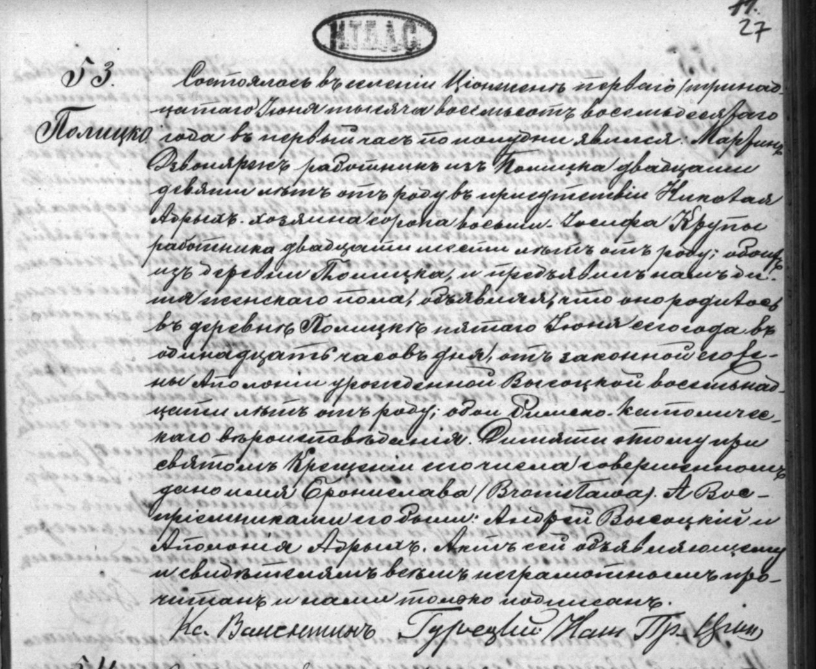 11.
27
53.
Полицко
Состоялось въ селеніи Ціонжень перваго (тринад-
цатаго) Іюня тысяча восемьсотъ восемьдесятаго
года въ первый часъ по полудни явился: Мартинъ
работникъ изъ Полицка двадцати
девяти лѣтъ отъ роду въ присутствіи Николая
Адрыхъ хозяина сорока восьми Іосифа Крупы
работника двадцати шести лѣтъ отъ роду; обоихъ
изъ деревни Полицка, и предъявилъ намъ ди-
тя женскаго пола, объявляя, что оно родилось
въ деревнѣ Полицкѣ пятаго Іюня сего года въ
одинадцать часовъ дня, отъ законной его же-
ны Аполоніи урожденной Высоцкой восемьнад-
цати лѣтъ отъ роду; обои Римско-Католичес-
каго вѣроисповѣданія. Дитяти этому при
святомъ Крещеніи сего числа совершенномъ
дано имя Брониславa (Bronisława). А Вос-
пріемниками его были: Андрей Высоцкій и
Аполонія Адрыхъ. Актъ сей объявляющему
и свидѣтелямъ всѣмъ неграмотнымъ про-
читанъ и нами только подписанъ.
Кс. Валентинъ Гурецкій Наст. Пр.
54